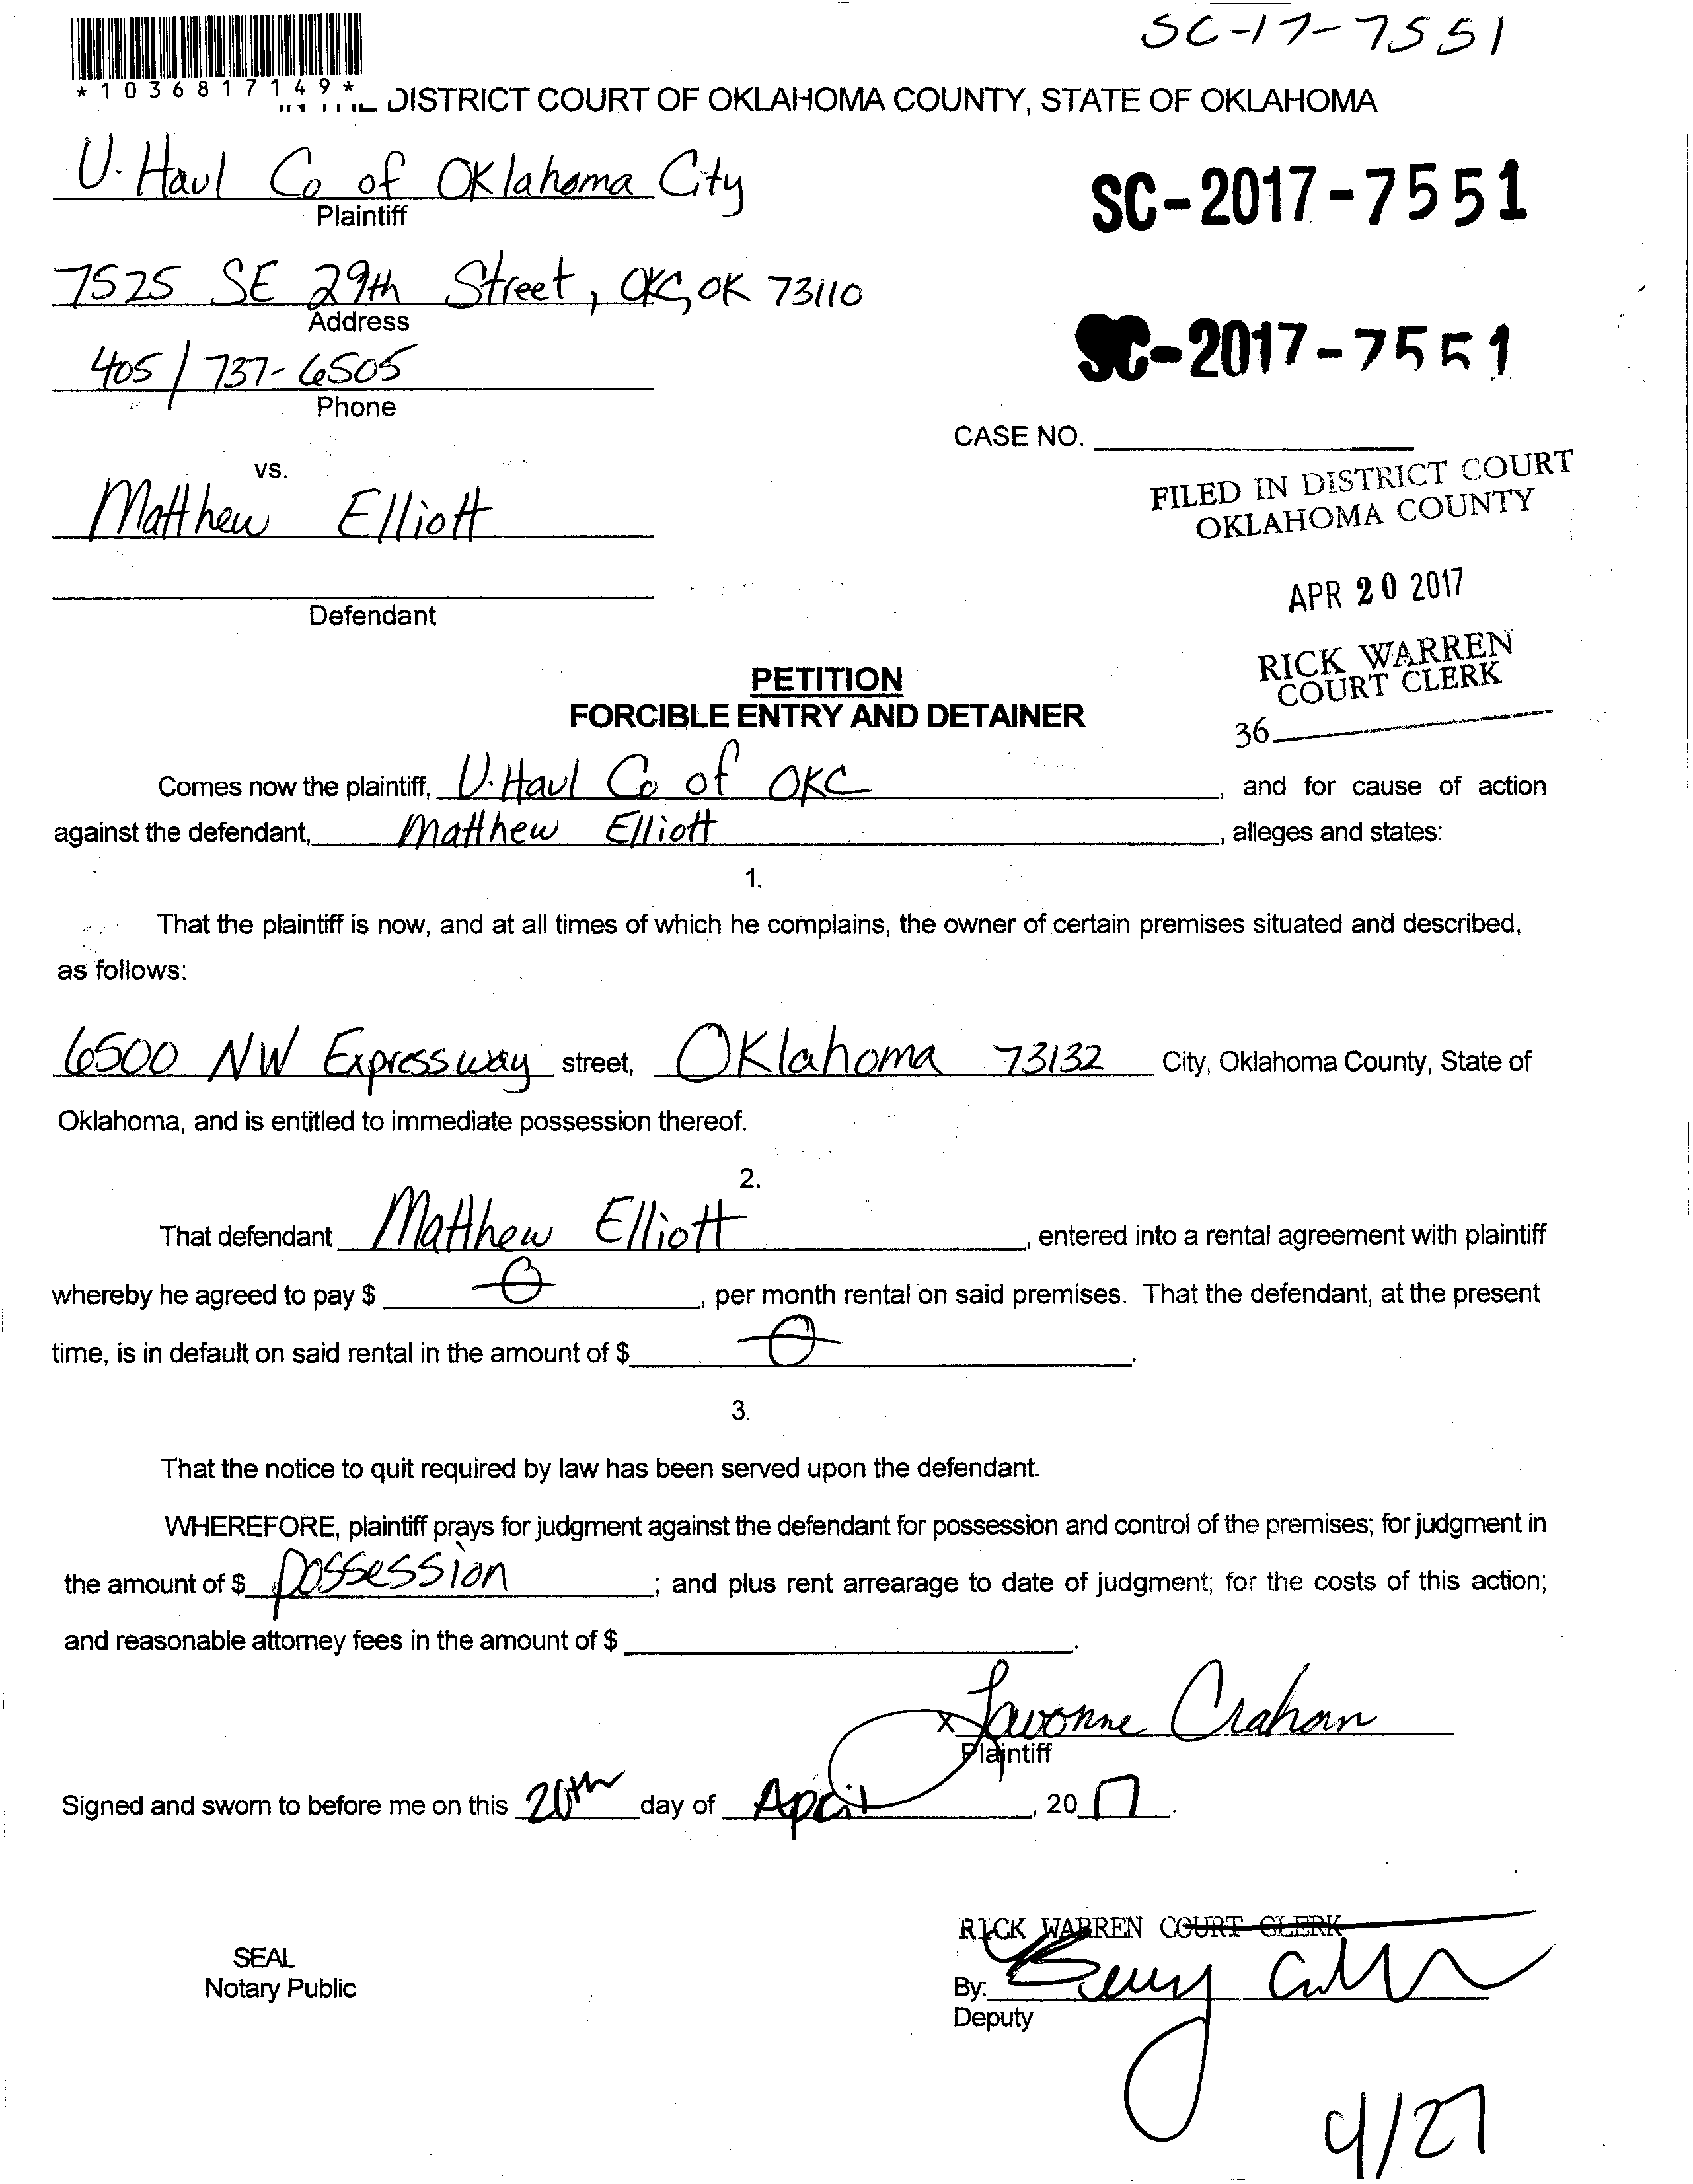 SC-17-7551
*1036817149*
DISTRICT COURT OF OKLAHOMA COUNTY, STATE OF OKLAHOMA
U-Haul Co of Oklahoma City
Plaintiff
SC-2017-7551
7525 SE 29th Street, OKC, OK 73110
Address
SC-2017-7551
405/737-6505
Phone
CASE NO.
vs.
FILED IN DISTRICT COURT
OKLAHOMA COUNTY
Matthew Elliott
APR 20 2017
Defendant
RICK WARREN
COURT CLERK
36
PETITION
FORCIBLE ENTRY AND DETAINER
Comes now the plaintiff, U-Haul Co of OKC, and for cause of action
against the defendant, Matthew Elliott, alleges and states:
1.
That the plaintiff is now, and at all times of which he complains, the owner of certain premises situated and described,
as follows:
6500 NW Expressway street, Oklahoma 73132 City, Oklahoma County, State of
Oklahoma, and is entitled to immediate possession thereof.
2.
That defendant Matthew Elliott, entered into a rental agreement with plaintiff
whereby he agreed to pay $ 0, per month rental on said premises. That the defendant, at the present
time, is in default on said rental in the amount of $ 0.
3.
That the notice to quit required by law has been served upon the defendant.
WHEREFORE, plaintiff prays for judgment against the defendant for possession and control of the premises; for judgment in
the amount of $ possession; and plus rent arrearage to date of judgment; for the costs of this action;
and reasonable attorney fees in the amount of $ .
x Lavonne Crahan
Plaintiff
Signed and sworn to before me on this 20th day of April, 2017.
RICK WARREN COURT CLERK
SEAL
Notary Public
By:
Deputy
4/27